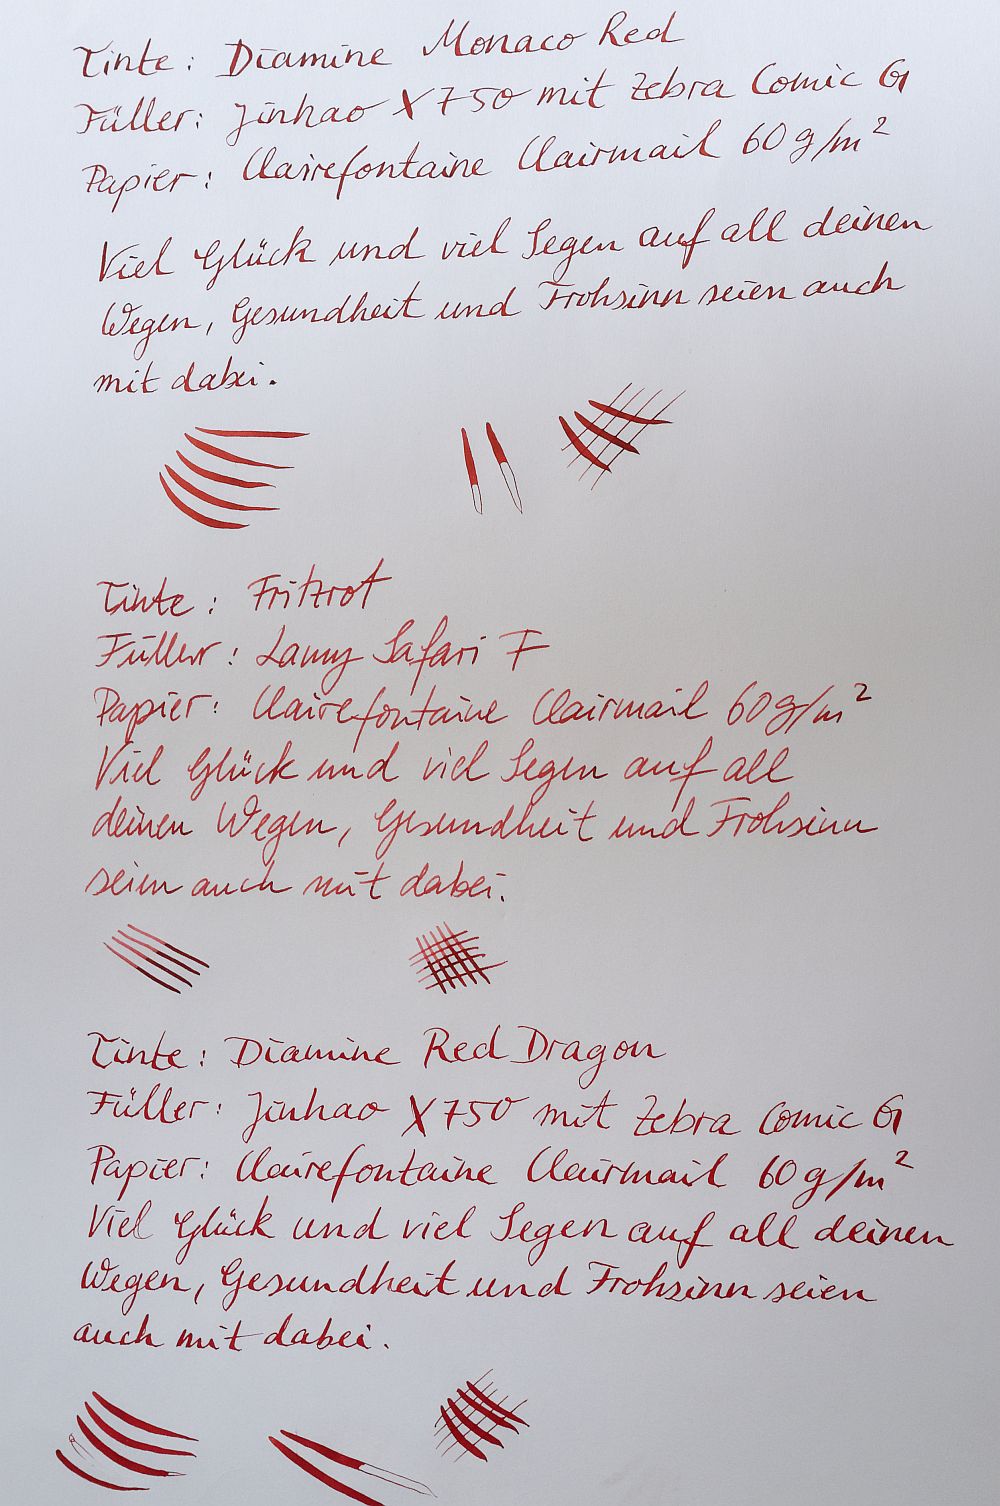 Tinte: Diamine Monaco Red
Füller: Jinhao X750 mit Zebra Comic G
Papier: Clairefontaine Clairmail 60 g/m²
Viel Glück und viel Segen auf all deinen
Wegen, Gesundheit und Frohsinn seien auch
mit dabei.
Tinte: Fritzrot
Füller: Lamy Safari F
Papier: Clairefontaine Clairmail 60 g/m²
Viel Glück und viel Segen auf all
deinen Wegen, Gesundheit und Frohsinn
seien auch mit dabei.
Tinte: Diamine Red Dragon
Füller: Jinhao X750 mit Zebra Comic G
Papier: Clairefontaine Clairmail 60 g/m²
Viel Glück und viel Segen auf all deinen
Wegen, Gesundheit und Frohsinn seien
auch mit dabei.